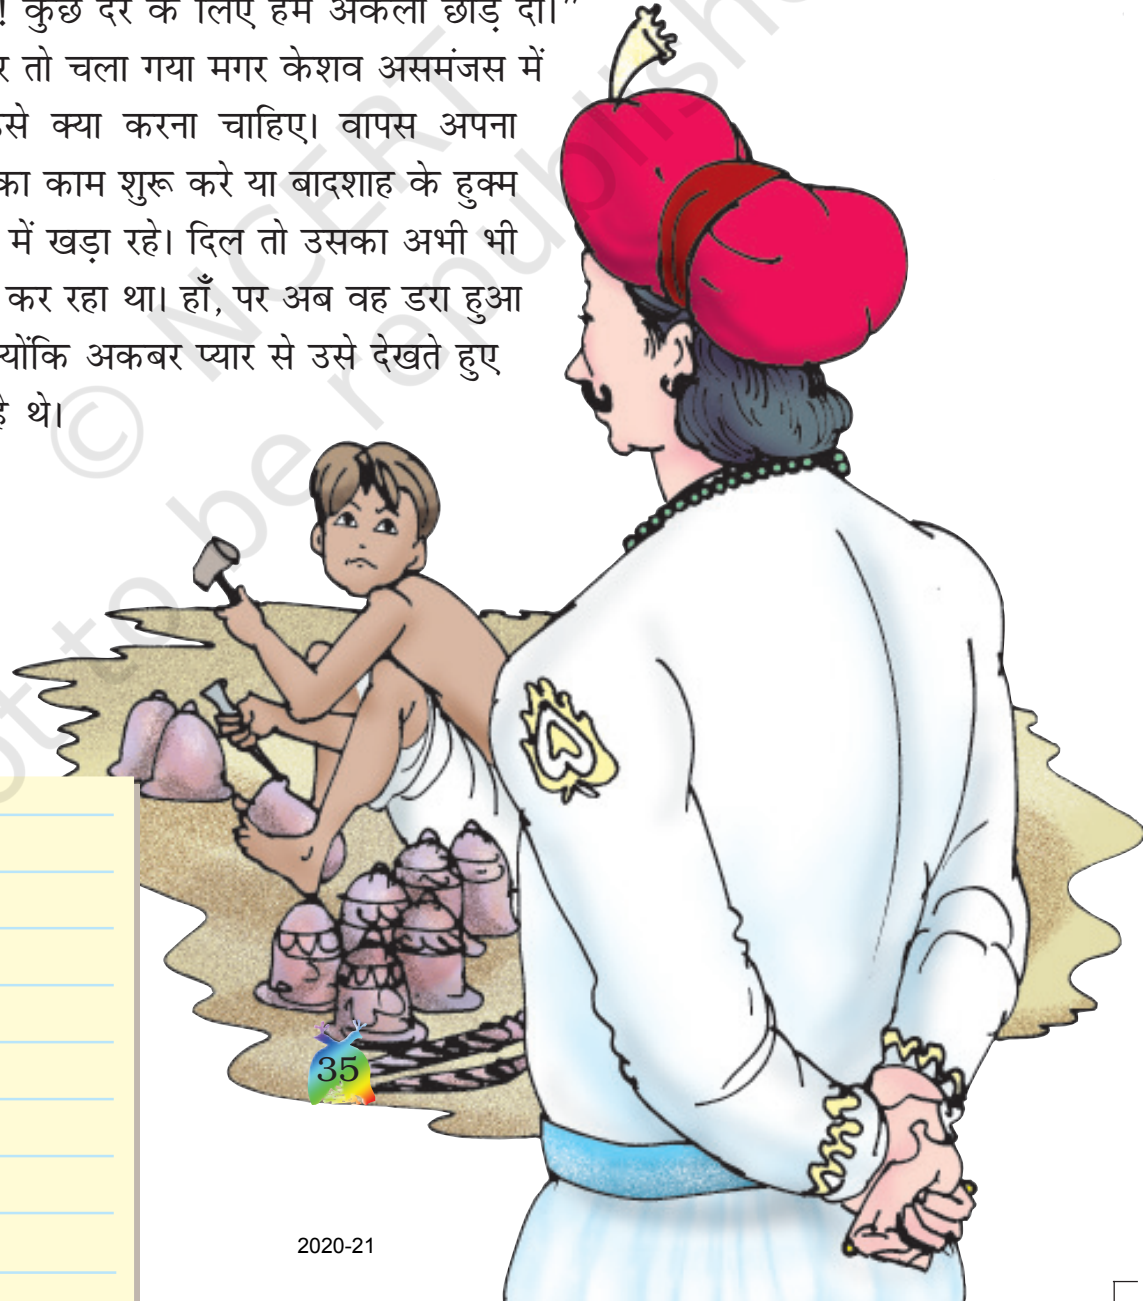 ! कुछ देर के लिए हमें अकेला छोड़ दो।”
तो चला गया मगर केशव असमंजस में
क्या करना चाहिए। वापस अपना
का काम शुरू करे या बादशाह के हुक्म
में खड़ा रहे। दिल तो उसका अभी भी
कर रहा था। हाँ, पर अब वह डरा हुआ
अकबर प्यार से उसे देखते हुए
थे।
© NCERT
not to be republished
35
2020-21